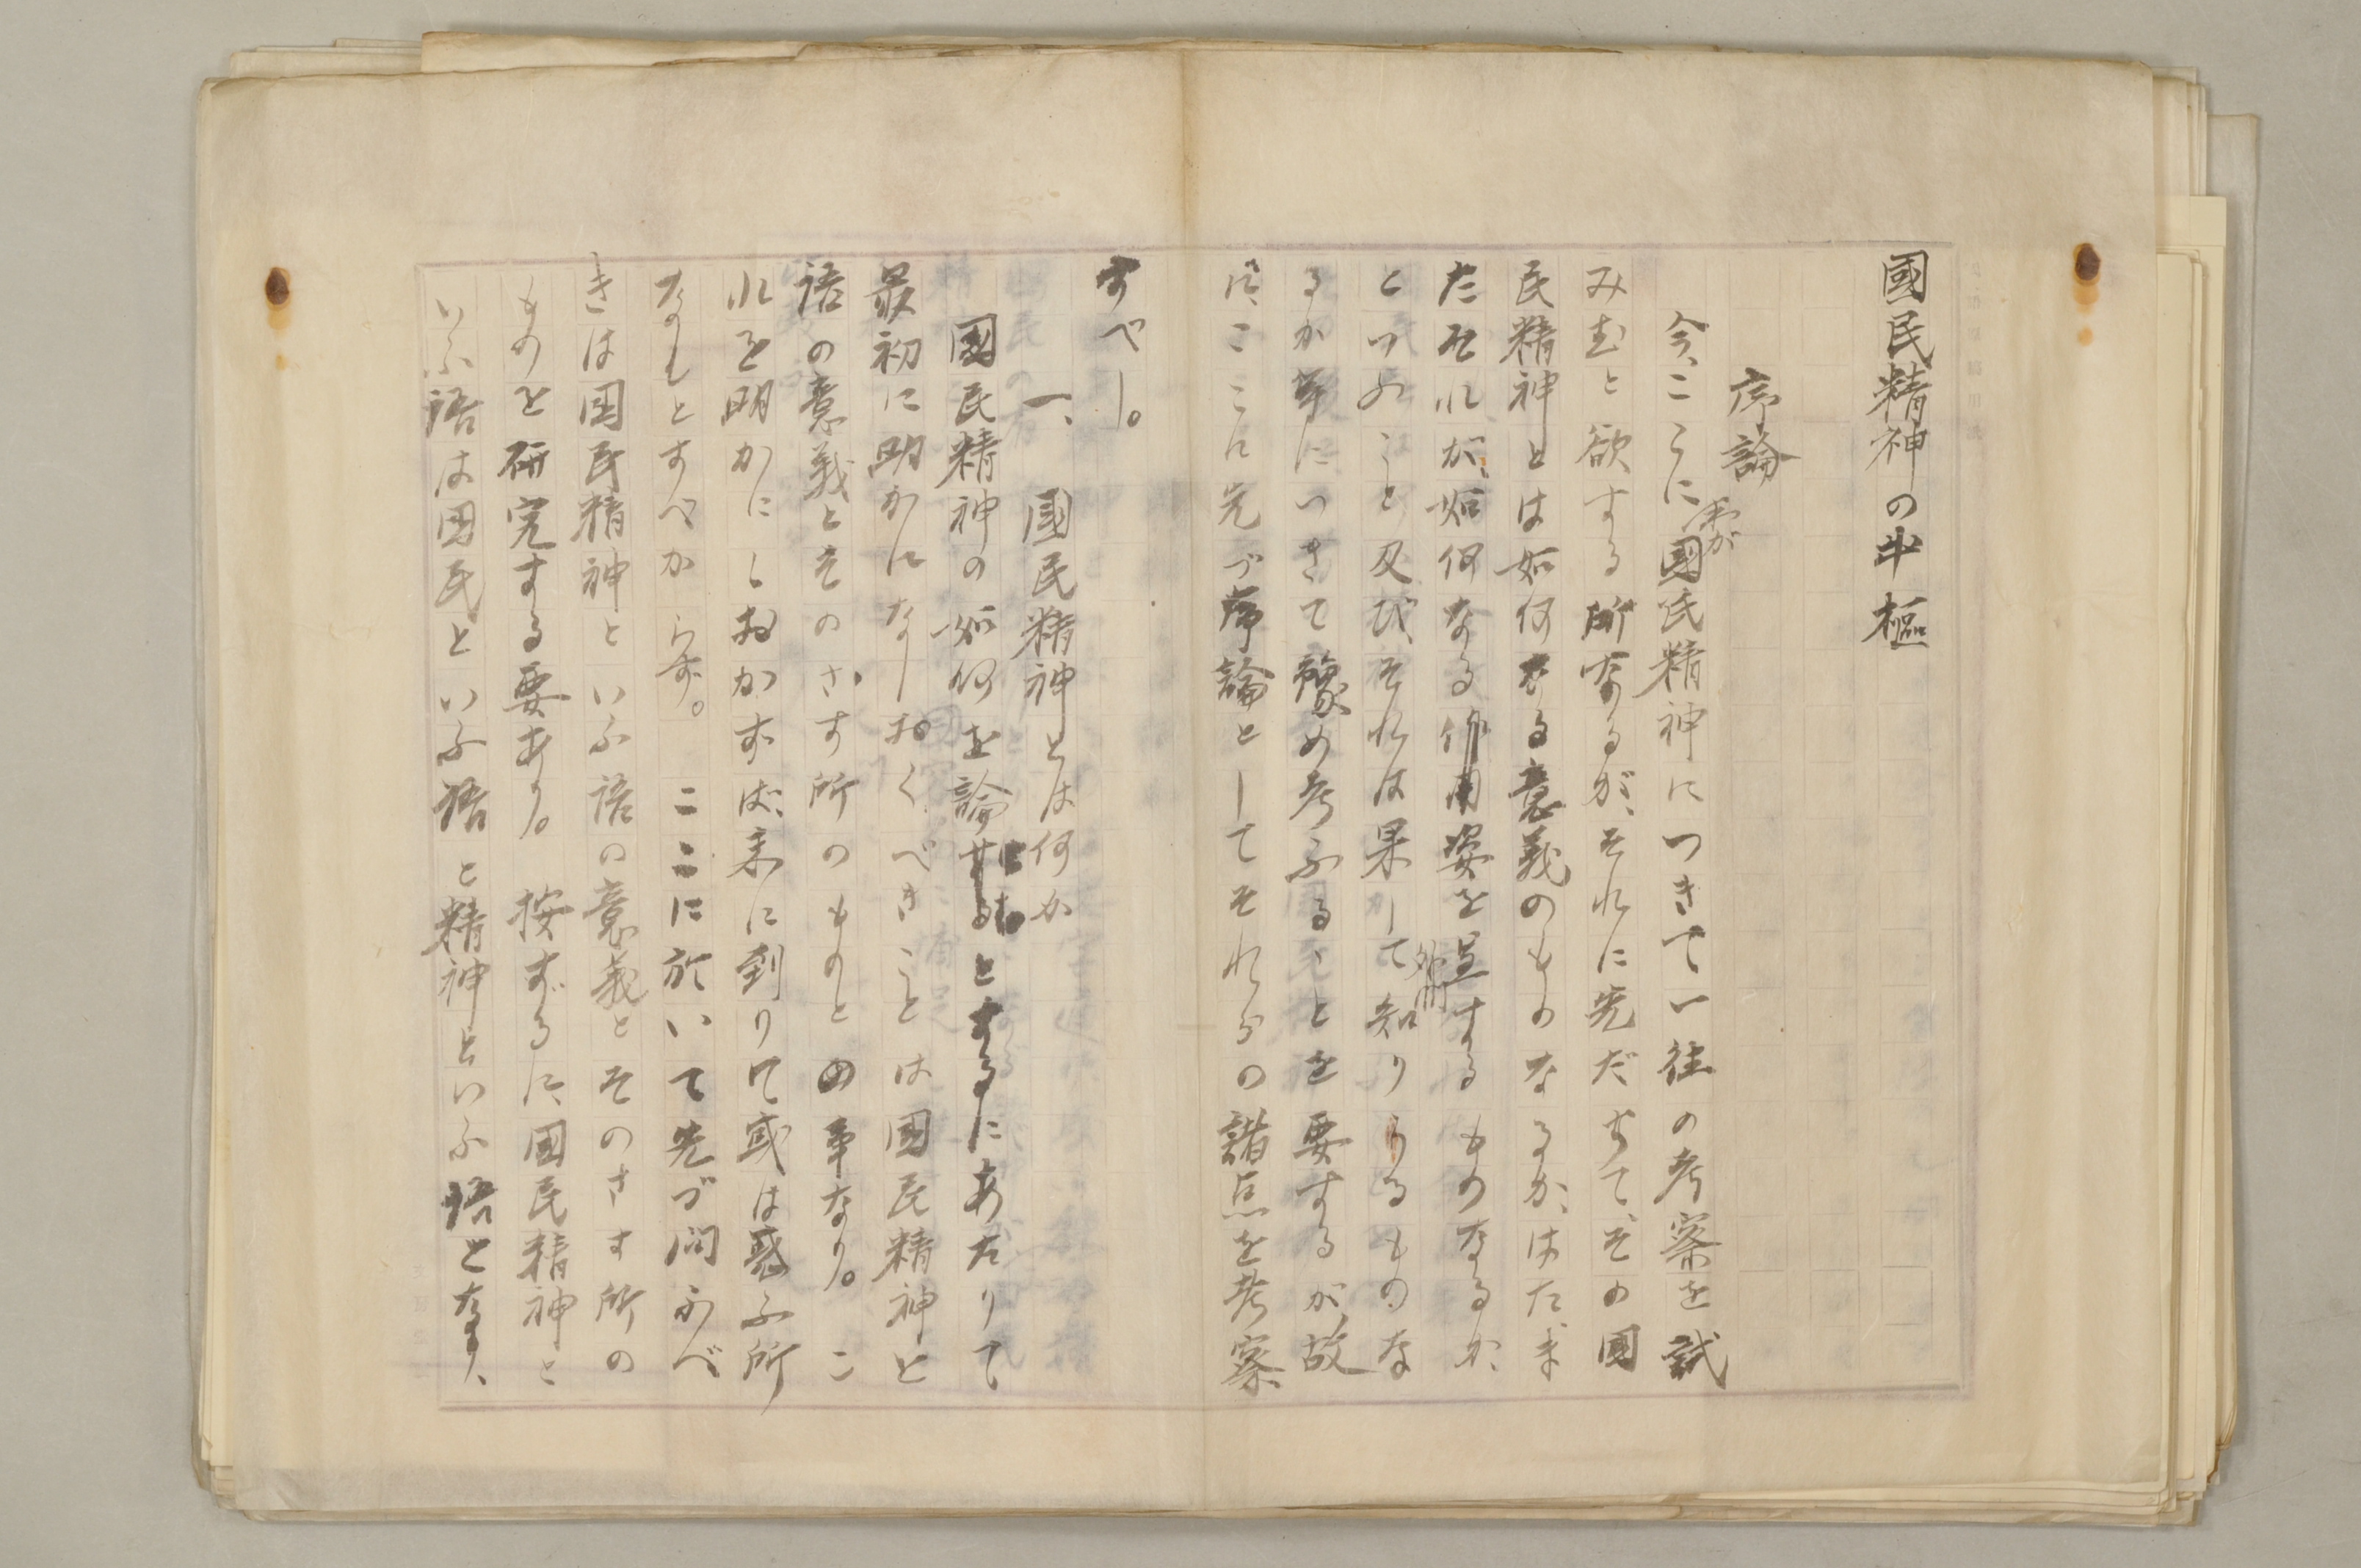 國民精神の中樞
序論
今、ここに我が國民精神につきて一往の考察を試
みむと欲する所なるが、それに先だちて、その國
民精神とは如何なる意義のものなるか、はたま
たそれが、如何なる姿を呈するものなるか、
といふこと及び、それは果して外所知りうるものな
るか等につきて豫め考ふることを要するが、故
に、ここに先づ序論としてそれらの諸点を考察
すべし。
一、國民精神とは何か
國民精神の如何を論ぜむとするにあたりて
最初に明かになしおくべきことは國民精神と
語の意義とそのさす所のものとの事なり。こ
れを明かにしおかずば、末に到りて或は惑ふ所
なしとすべからず。ここに於いて先づ問ふべ
きは国民精神といふ語の意義とそのさす所の
ものを研究する要あり。按ずるに、國民精神と
いふ語は国民といふ語と精神といふ語となり、